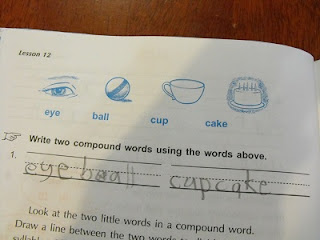 Lesson 12
eye ball cup cake
Write two compound words using the words above.
1. eye baall cupcake
Look at the two little words in a compound word.
Draw a line between the two words to